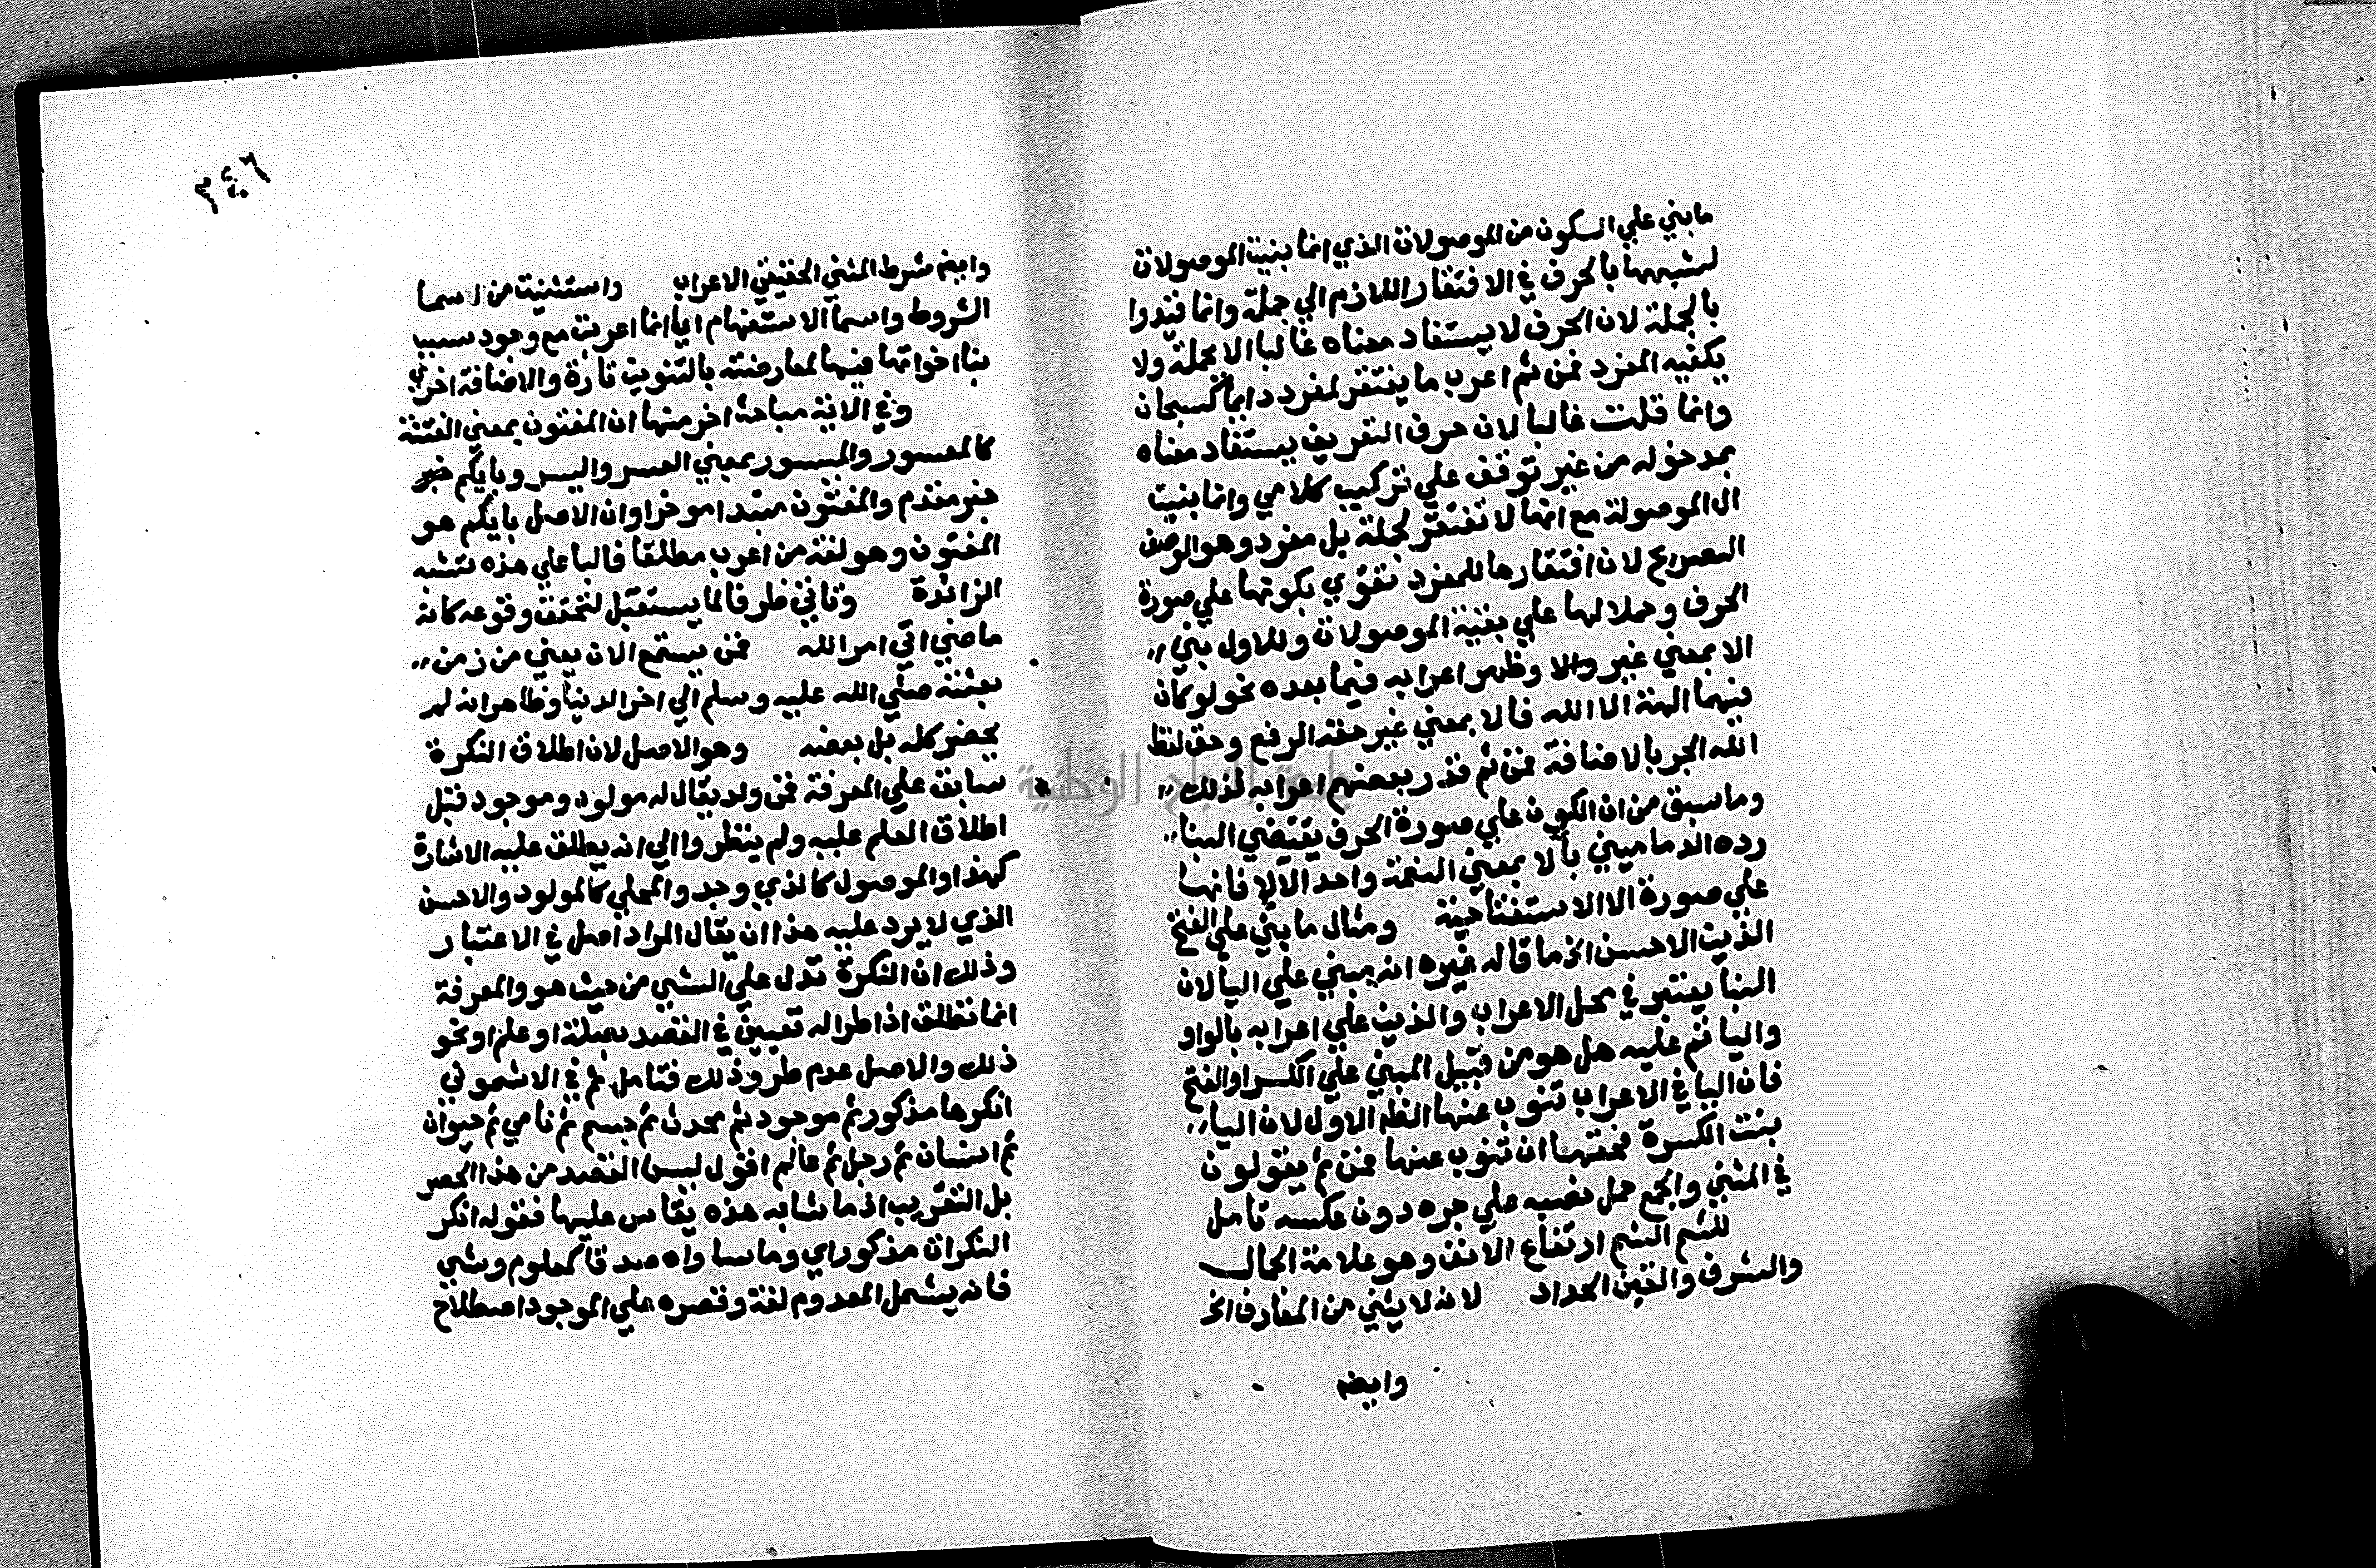 ما بني علي السكون من الموصولات الذي انما بنيت الموصولات
لشبهها بالحرف في الافتقار اللازم الي جملة وانما قيدرا
بالجملة لان الحرف لا يستفاد معناه غالبا الا بجملة ولا
يكفيه المفرد فمن ثم اعرب ما يفتقر لمفرد دايما كسبحان
وانما قلت غالبا لان حرف التعريف يستفاد معناه
بمدخوله من غير توقف علي تركيب كلامي وانما بنيت
ال الموصولة مع انها لا تفتقر لجملة بل مفرد وهو الوصف
الصريح لان افتقارها للمفرد تقوي بكونها علي صورة
الحرف وحملا لها علي بقية الموصولات وللاول بني
الا بمعني غير والا وظهر اعرابه فيما بعده نحو لو كان
فيهما الهة الا الله فالا بمعني غير حقه الرفع وحق لفظ
الله الجر بالاضافة فمن ثم قدر بعضهم اعرابه لذلك
وما سبق من ان الكون علي صورة الحرف يقتضي البنا
رده الدماميني بألا بمعني النعمة واحد الآلاء فانها
علي صورة الا الاستفتاحية ومثال ما بني علي الفتح
الذين الاحسن الخ ما قاله غيره انه مبني علي اليا لان
البنا يعتبر في محل الاعراب والذين علي اعرابه بالواو
واليا ثم عليه هل هو من قبيل المبني علي الكسر او الفتح
فان اليا في الاعراب تنوب عنها الظم الاول لان اليا
بنت الكسرة فحقها ان تنوب عنها فمن ثم يقولون
في المثني والجمع حمل نصبه علي جره دون عكسه تامل
للشم الشم ارتفاع الانف وهو علامة الجمال
والشرف والقين الحداد لانه لا يثني من المعارف الخ
وايضه
٣٤٦
وايضه شرط المثني الحقيقي الاعراب واستثنيت من اسما
الشروط واسما الاستفهام اي انما اعربت مع وجود سببا
بنا اخواتها فيها لمعارضته بالتنوين تارة والاضافة اخري
وفي الاية مباحث اخر منها ان المفتون بمعني الفتنة
كالمعسور والميسور بمعني العسر واليسر وبايكم
خبر مقدم والمفتون مبتدا موخر او ان الاصل بايكم هو
المفتون وهو لغة من اعرب مطلقا فالبا علي هذه تشبه
الزائدة وتاني ظرفا لما يستقبل لتحقق وقوعه كانه
ماضي اتي امر الله فمن يستمع الان يعني من زمن
بعثته صلي الله عليه وسلم الي اخر الدنيا وظاهر انه لم
يحضر كله بل بعضه وهو الاصل لان اطلاق النكرة
سابق علي المعرفة فمن ولد يقال له مولود وموجود قبل
اطلاق العلم عليه ولم ينظروا الي انه يطلق عليه الاشارة
كهذا والموصول كالذي وجد والمحلي كالمولود والاحسن
الذي لا يرد عليه هذا ان يقال المراد اصل في الاعتبار
وذلك ان النكرة تدل علي الشي من حيث هو والمعرفة
انما تطلق اذا طرا له تعيين في القصد بصلة او علم او نحو
ذلك والاصل عدم طرو ذلك فتامل ثم في الاشموني
انكرها مذكور ثم موجود ثم محدث ثم جسم ثم نامي ثم حيوان
ثم انسان ثم رجل ثم عالم اقول ليس القصد من هذا الحصر
بل التقريب اذ ما شابه هذه يقاس عليها فقوله انكر
النكرات مذكور اي وما ساواه صدقا كمعلوم وشي
فانه يشمل المعدوم لغة وقصره علي الموجود اصطلاح
جامعة النجاح الوطنية